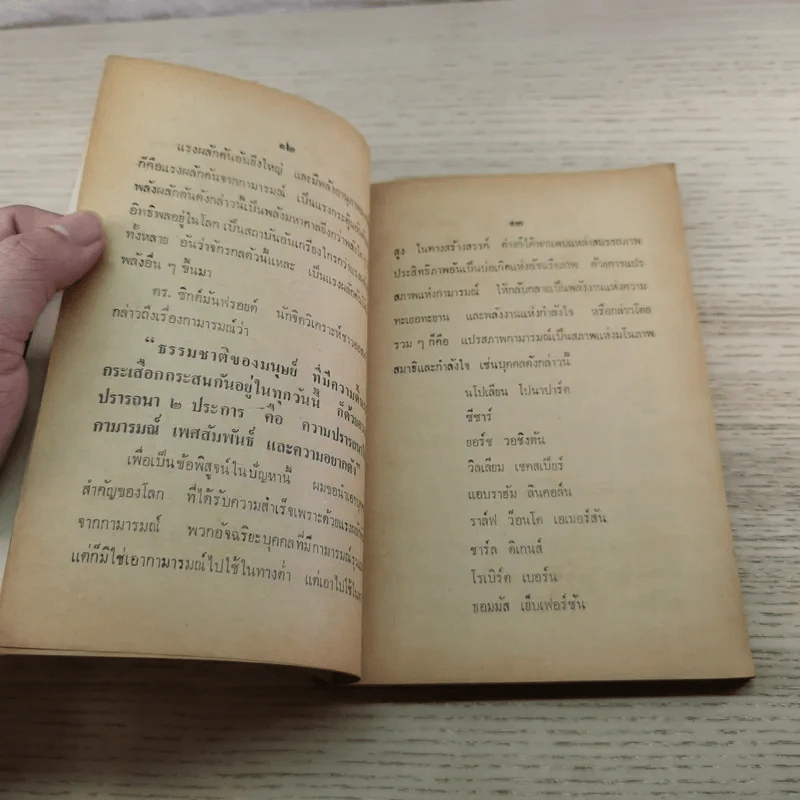 ๑๒
แรงผลักดันอันยิ่งใหญ่ และมีพลังอานุภาพ
ก็คือแรงผลักดันจากกามารมณ์ เป็นแรงกระตุ้น
พลังผลักดันดังกล่าวนี้เป็นพลังมหาศาลยิ่งกว่าพลังใด
อิทธิพลอยู่ในโลก เป็นสถาบันอันเกรียงไกรกว่า
ทั้งหลาย อันว่าจักรกลตัวนี้แหละ เป็นแรงผลักดัน
พลังอื่น ๆ ขึ้นมา
ดร. ซิกต์มันฟรอยด์ นักจิตวิเคราะห์ชาว
กล่าวถึงเรื่องกามารมณ์ว่า
“ธรรมชาติของมนุษย์ ที่มีความดิ้นรน
กระเสือกกระสนกันอยู่ในทุกวันนี้ ก็ด้วย
ปรารถนา ๒ ประการ คือ ความปรารถนา
กามารมณ์ เพศสัมพันธ์ และความอยากดัง”
เพื่อเป็นข้อพิสูจน์ในปัญหานี้ ผมขอนำเอา
สำคัญของโลก ที่ได้รับความสำเร็จเพราะด้วยแรงผลักดัน
จากกามารมณ์ พวกอัจฉริยะบุคคลที่มีกามารมณ์
แต่ก็มิใช่เอากามารมณ์ไปใช้ในทางต่ำ แต่เอาไปใช้ใน
๑๓
สูง ในทางสร้างสรรค์ ต่างก็ได้พบแหล่งสมรรถภาพ
ประสิทธิภาพอันเป็นบ่อเกิดแห่งอัจฉริยภาพ ด้วยการแปร
สภาพแห่งกามารมณ์ ให้กลับกลายเป็นพลังงานแห่งความ
ทะเยอทะยาน และพลังงานแห่งกำลังใจ หรือกล่าวโดย
รวม ๆ ก็คือ แปรสภาพกามารมณ์เป็นสภาพแห่งมโนภาพ
สมาธิและกำลังใจ เช่นบุคคลดังกล่าวนี้
นโปเลียน โปนาปาร์ต
ซีซาร์
ยอร์ช วอชิงตัน
วิลเลียม เชคสเปียร์
แอบราฮัม ลินคอล์น
ราล์ฟ ว็อนโด เอเมอร์สัน
ชาร์ล ดิเกนส์
โรเบิร์ต เบอร์น
ธอมมัส เย็บเฟอร์ซัน